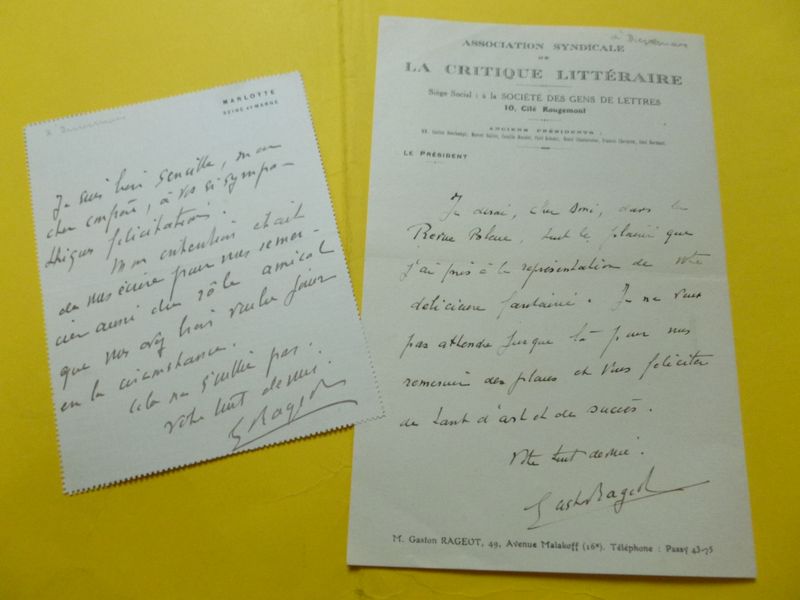 MARLOTTE
SEINE ET MARNE
Je suis bien sensible, mon
cher confrère, à vos si sympa-
thiques félicitations.
Mon intention était
de vous écrire pour vous remer-
cier aussi du rôle amical
que vous avez bien voulu jouer
en la circonstance.
Cela ne s'oublie pas.
Votre tout dévoué.
G Rageot
ASSOCIATION SYNDICALE
DE
LA CRITIQUE LITTÉRAIRE
Siège Social : à la SOCIÉTÉ DES GENS DE LETTRES
10, Cité Rougemont
ANCIENS PRÉSIDENTS :
LE PRÉSIDENT
Je dirai, cher ami, dans la
Revue Bleue, tout le plaisir que
j'ai pris à la représentation de votre
délicieuse fantaisie. Je ne veux
pas attendre jusque là pour vous
remercier des places et vous féliciter
de tant d'art et de succès.
Votre tout dévoué.
Gaston Rageot
M. Gaston RAGEOT, 49, Avenue Malakoff (16e). Téléphone : Passy 43-75